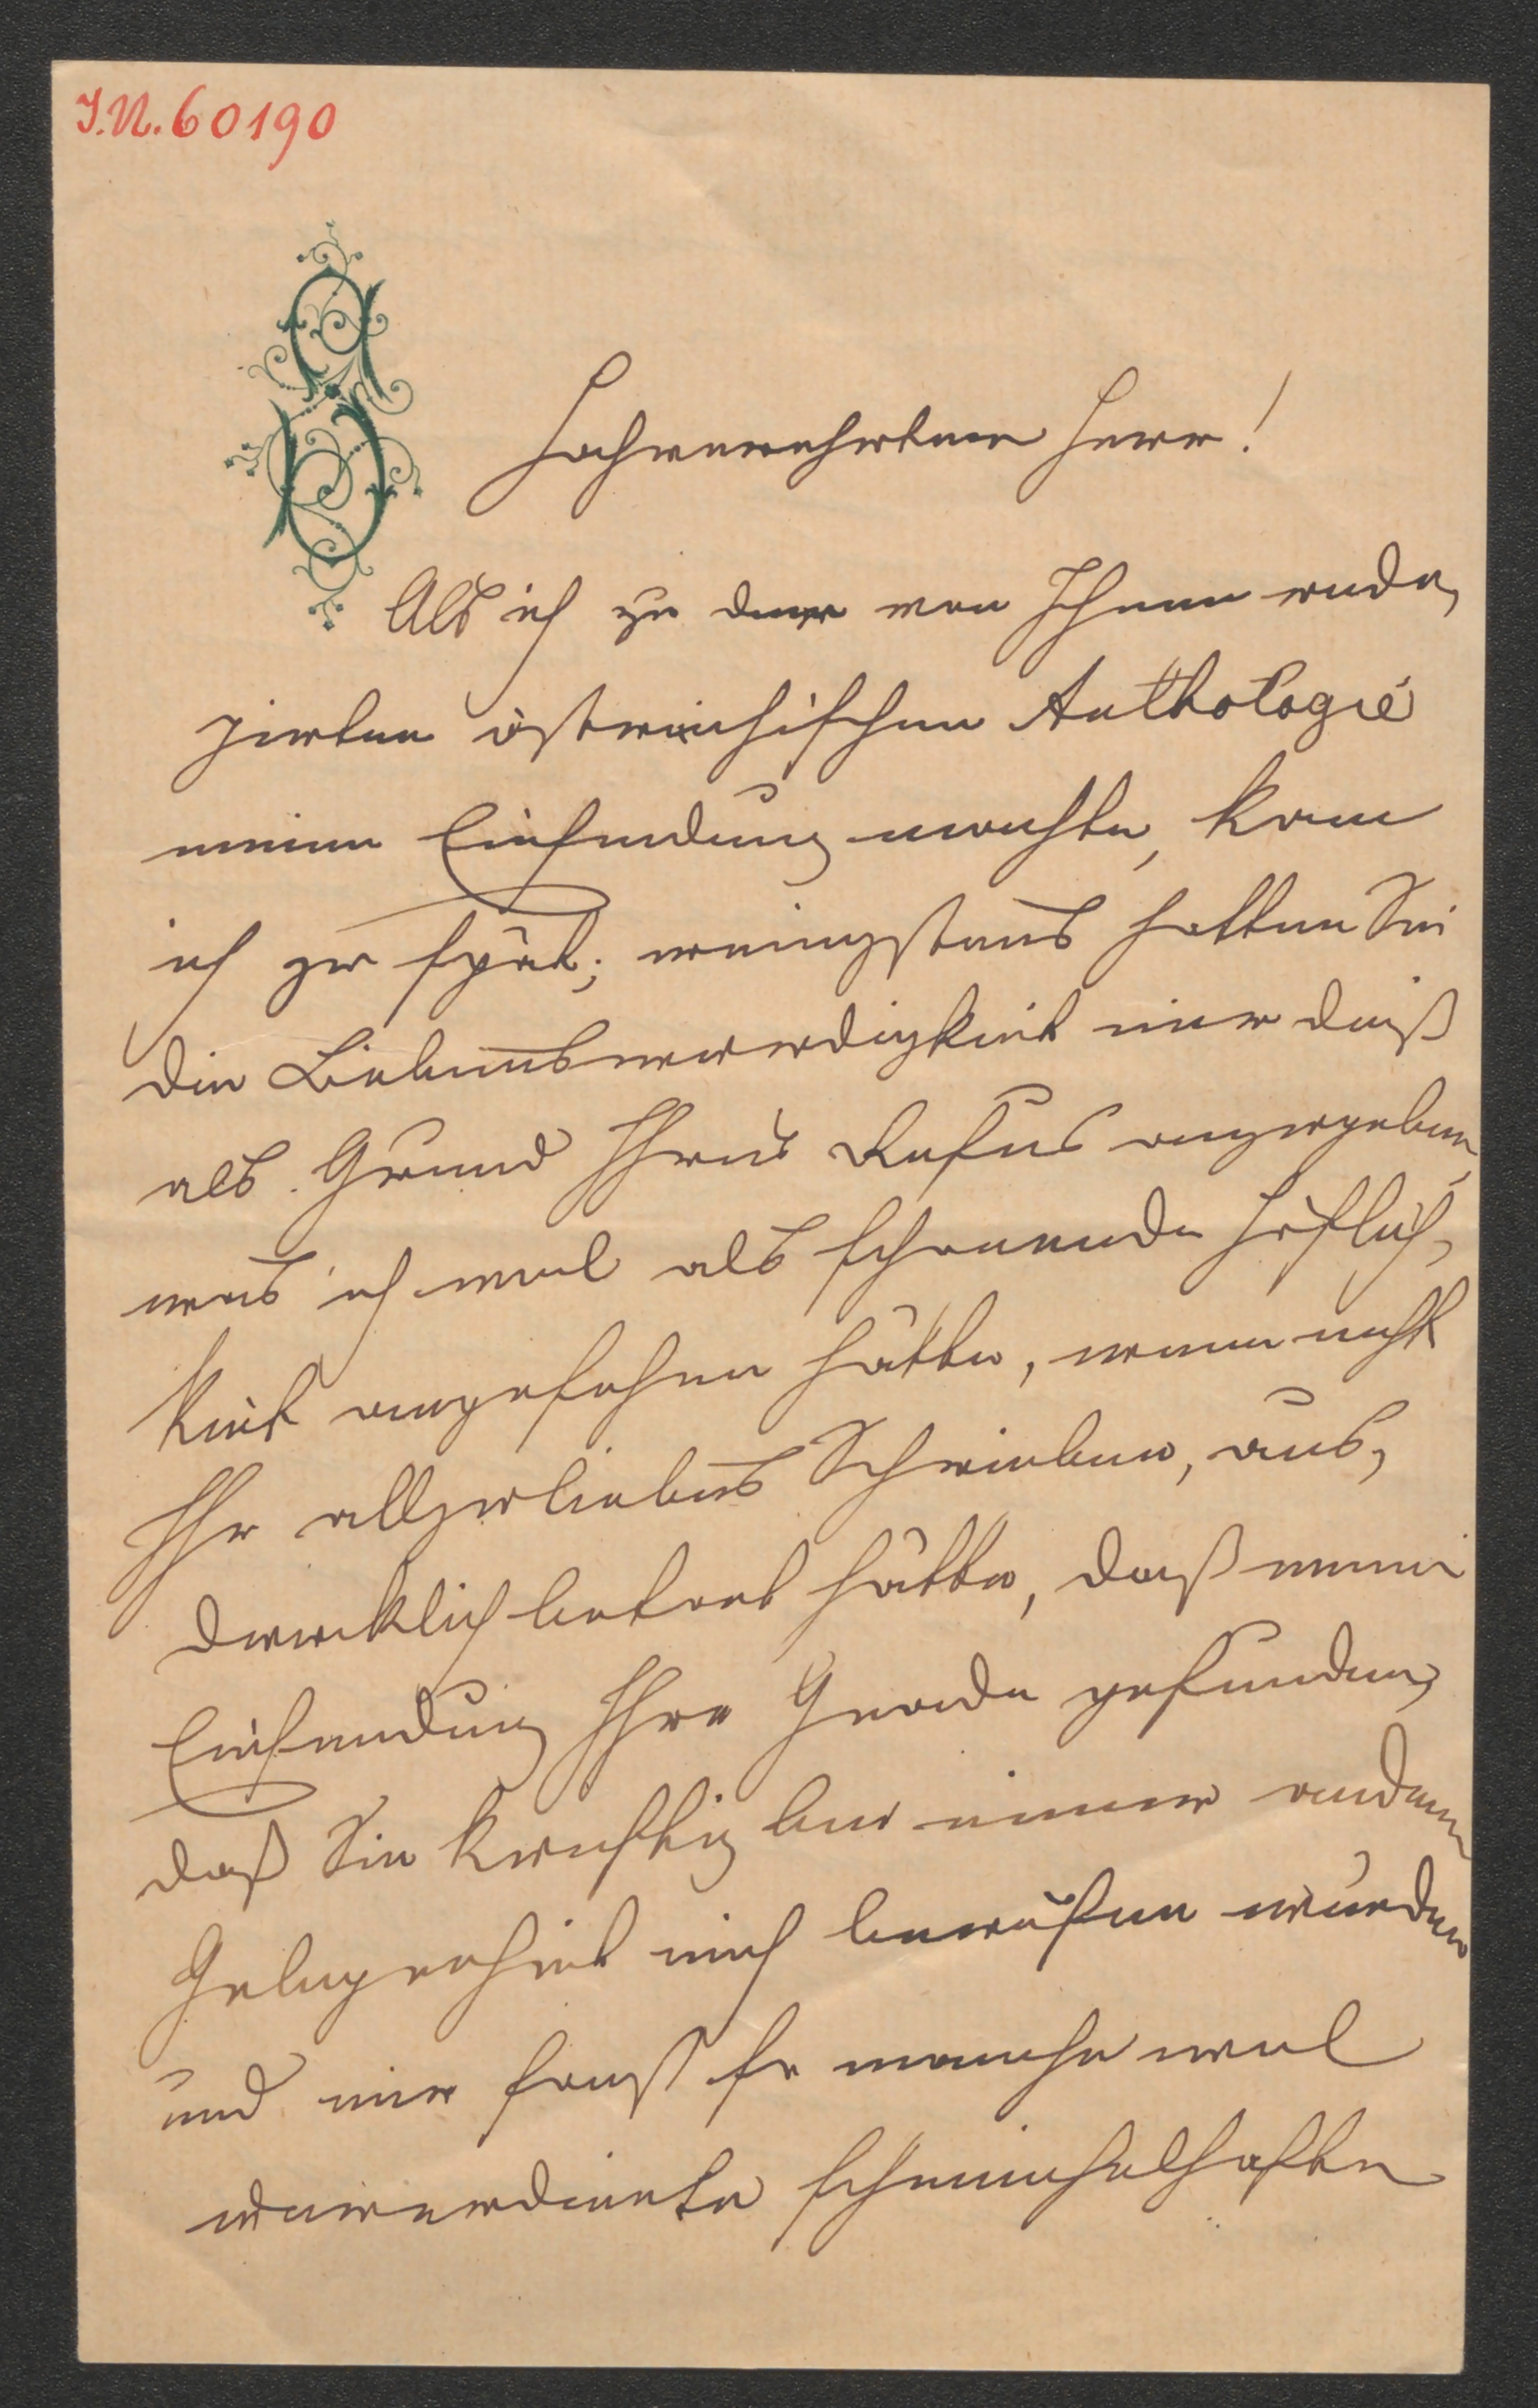 I.N. 60190
Hochverehrter Herr!
Als ich zu der von Ihnen redi,
zirten östreichischen Anthologie
meine Einsendung machte, kam
ich zu spät; wenigstens hatten Sie
die Liebenswürdigkeit mir dieß
als Grund Ihres Refus anzugeben,
was ich wol als schonende Höflich,
keit angesehen hätte, wenn nicht
Ihr allzuliebes Schreiben, aus,
drücklich betont hätte, daß meine
Einsendung Ihre Gnade gefunden,
daß Sie künftig bei einer andern
Gelegenheit mich berufen würden
und mir sonst so manche wol
unverdiente schmeichelhafte